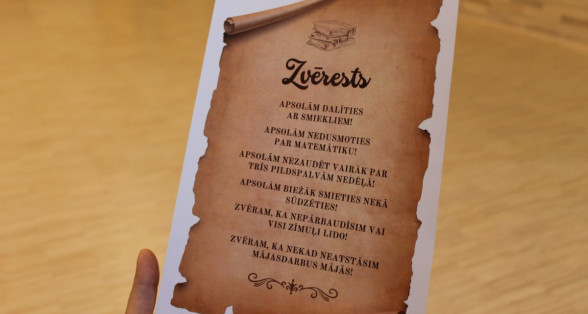 Zvērests
APSOLĀM DALĪTIES
AR SMIEKLIEM!
APSOLĀM NEDUSMOTIES
PAR MATEMĀTIKU!
APSOLĀM NEZAUDĒT VAIRĀK PAR
TRĪS PILDSPALVĀM NEDĒĻĀ!
APSOLĀM BIEŽĀK SMIETIES NEKĀ
SŪDZĒTIES!
ZVĒRAM, KA NEPĀRBAUDĪSIM VAI
VISI ZĪMUĻI LIDO!
ZVĒRAM, KA NEKAD NEATSTĀSIM
MĀJASDARBUS MĀJĀS!